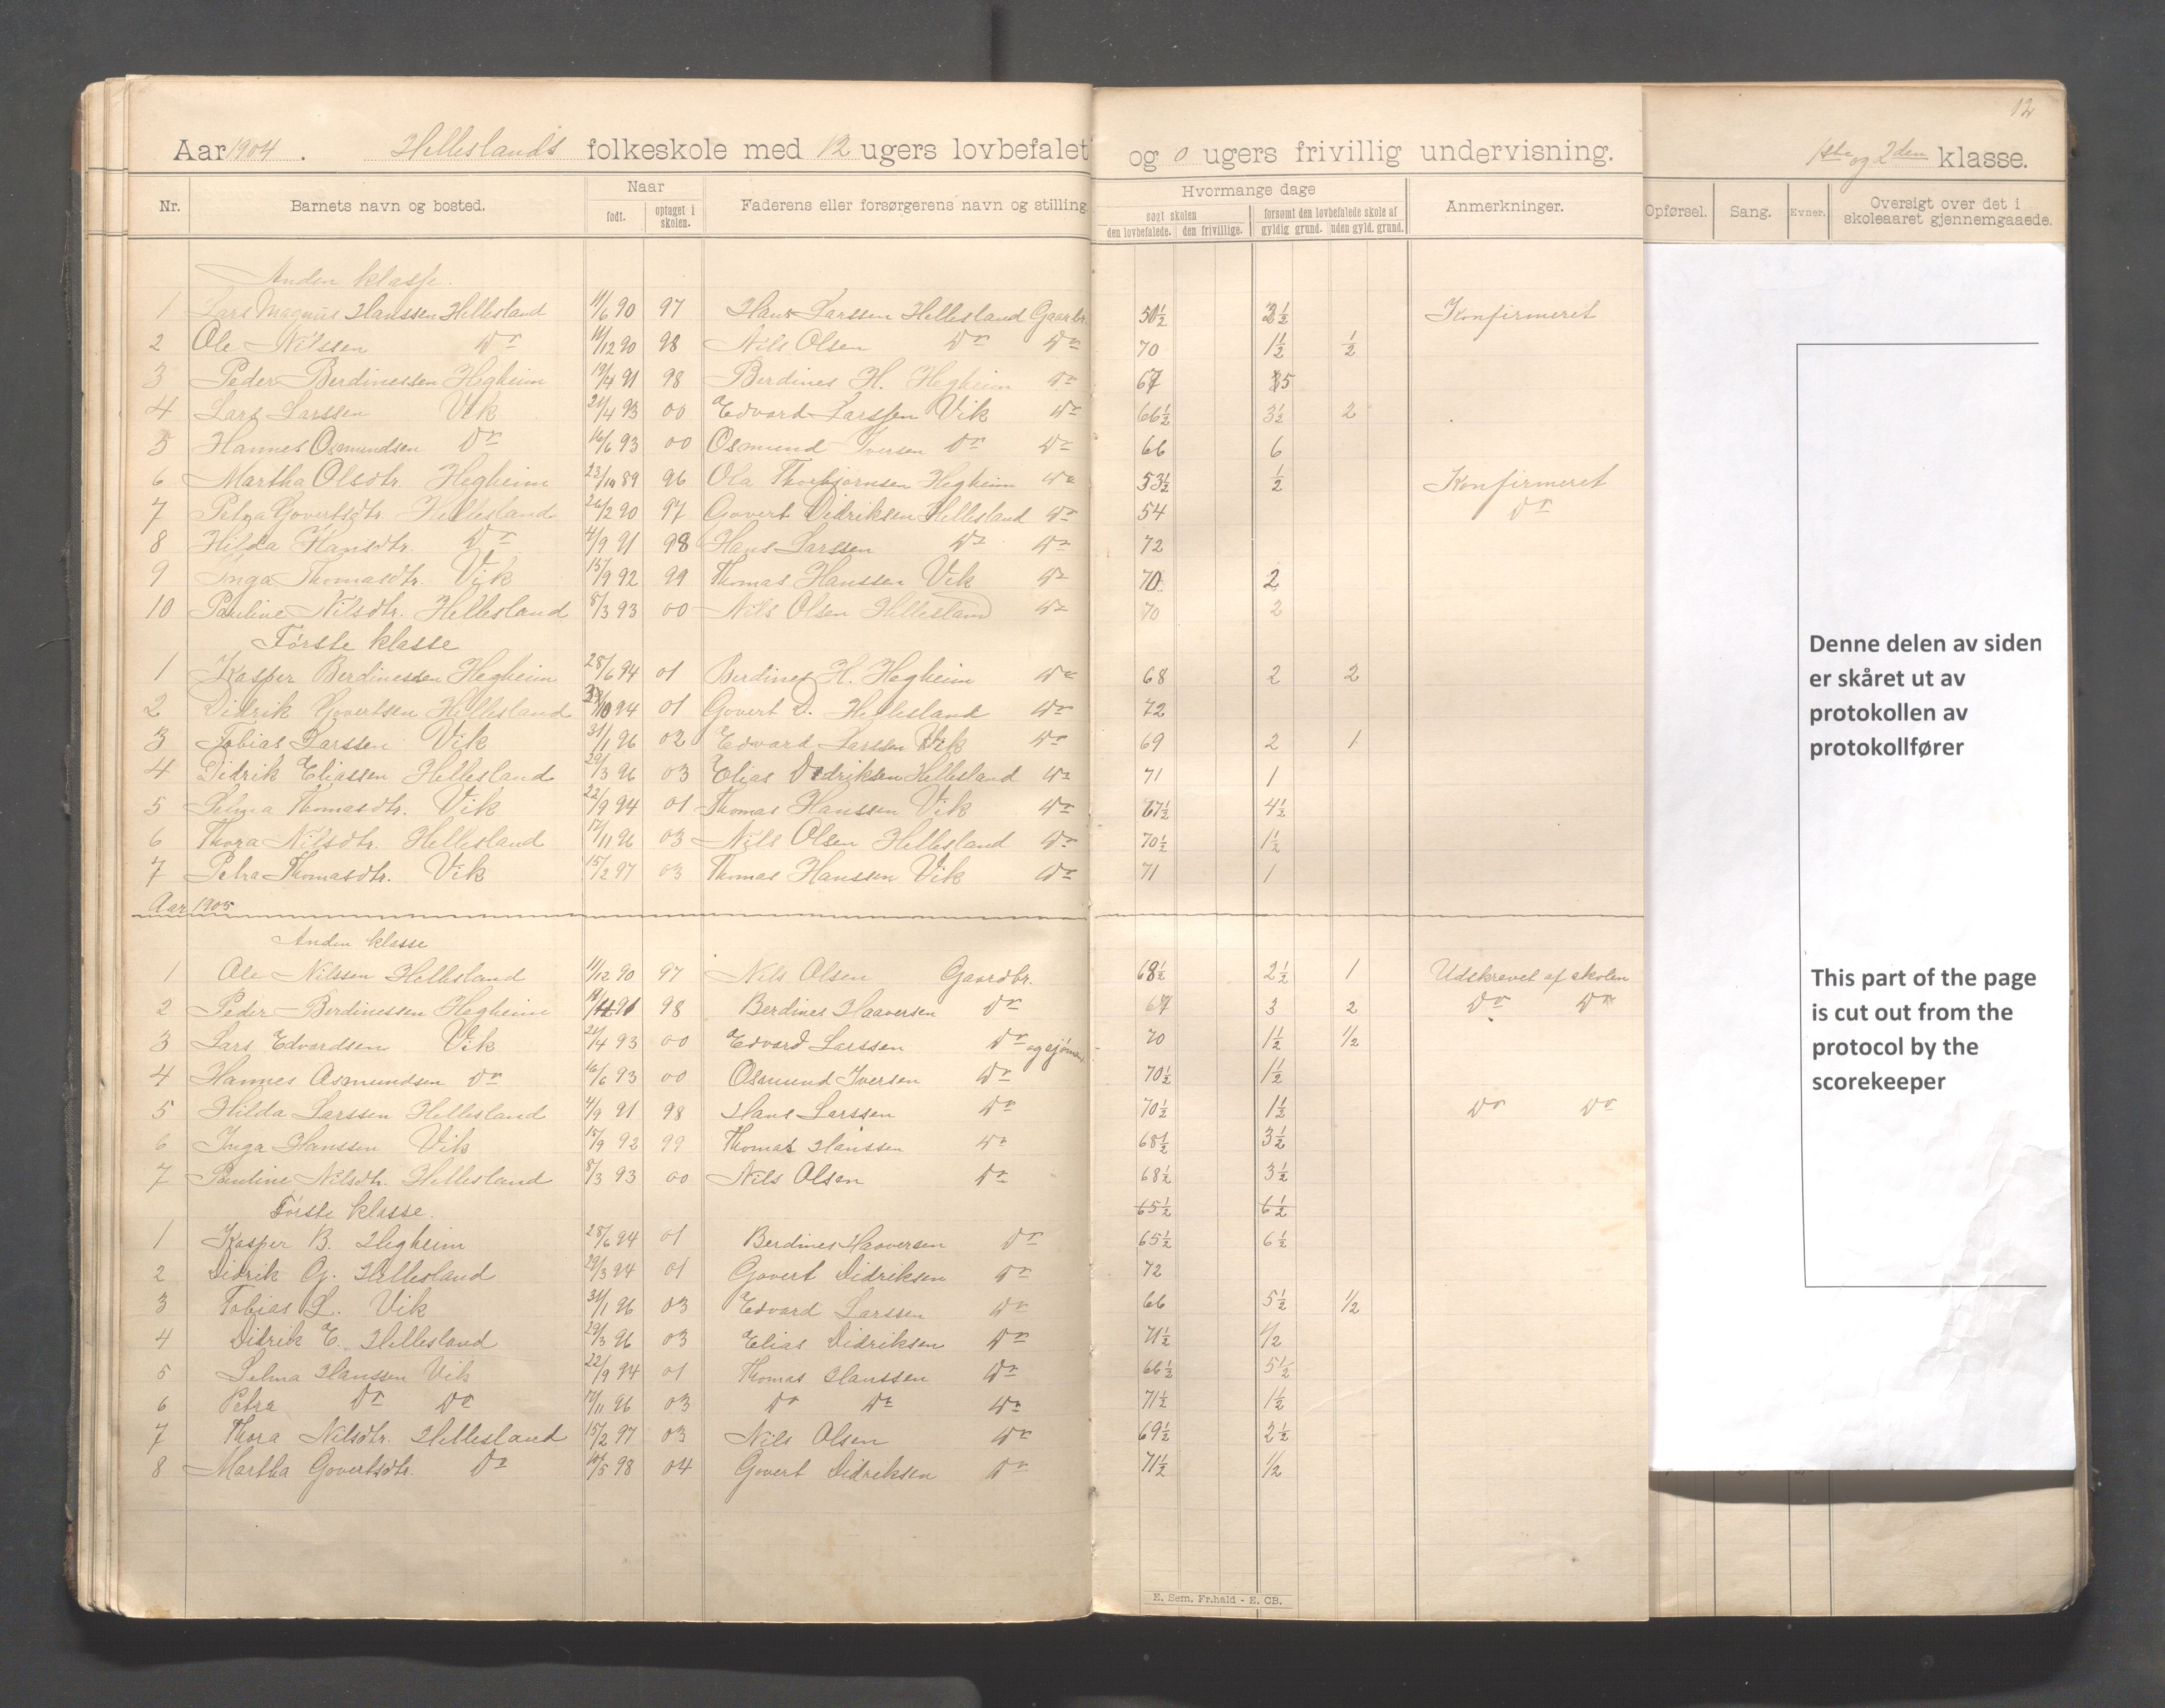 12
Aar 1904. Helleslands folkeskole med 12 ugers lovbefalet og 0 ugers frivillig undervisning. 1ste og 2den klasse.
Nr. Barnets navn og bosted. Naar født. optaget i skolen. Faderens eller forsørgerens navn og stilling. Hvormange dage søgt skolen den lovbefalede. den frivillige. forsømt den lovbefalede skole af gyldig grund. uden gyld. grund. Anmerkninger. Opførsel. Sang. Evner. Oversigt over det i skoleaaret gjennemgaaede.
Anden klasse.
1 Lars Magnus Hanssen Hellesland 11/6 90 97 Hans Larssen Hellesland Gaardbr. 50½ 3½ Konfirmeret
2 Ole Nilssen Do 11/12 90 98 Nils Olsen Do Do 70 1½ ½
3 Peder Berdinessen Hegheim 19/4 91 98 Berdines H. Hegheim Do 67 5
4 Lars Larssen Vik 21/4 93 00 Edvard Larssen Vik Do 66½ 3½ 2
5 Hannes Osmundsen Do 16/6 93 00 Osmund Iversen Do Do 66 6
6 Martha Olsdtr. Hegheim 23/10 89 96 Ola Thorbjørnsen Hegheim Do 53½ ½ Konfirmeret
7 Petra Govertsdtr. Hellesland 26/2 90 97 Govert Didriksen Hellesland Do 54 Do
8 Hilda Hansdtr. Do 4/9 91 98 Hans Larssen Do Do 72
9 Inga Thomasdtr. Vik 15/9 92 99 Thomas Hanssen Vik Do 70 2
10 Pauline Nilsdtr. Hellesland 8/3 93 00 Nils Olsen Hellesland Do 70 2
Første klasse
1 Kasper Berdinessen Hegheim 28/6 94 01 Berdines H. Hegheim Do 68 2 2
2 Didrik Govertsen Hellesland /10 94 01 Govert D. Hellesland Do 72
3 Tobias Larssen Vik 31/1 96 02 Edvard Larssen Vik Do 69 2 1
4 Didrik Eliassen Hellesland 29/3 96 03 Elias Didriksen Hellesland Do 71 1
5 Selma Thomasdtr. Vik 22/9 94 01 Thomas Hanssen Vik Do 67½ 4½
6 Thora Nilsdtr. Hellesland 17/11 96 03 Nils Olsen Hellesland Do 70½ 1½
7 Petra Thomasdtr. Vik 15/2 97 03 Thomas Hanssen Vik Do 71 1
Aar 1905
Anden klasse
1 Ole Nilssen Hellesland 11/12 90 97 Nils Olsen Gaardbr. 68½ 2½ 1 Udskrevet af skolen
2 Peder Berdinessen Hegheim 91 98 Berdines Haaversen Do 67 3 2 Do Do
3 Lars Edvardsen Vik 21/4 93 00 Edvard Larssen Do og sjømand 70 1½ ½
4 Hannes Osmundsen Do 16/6 93 00 Osmund Iversen Do 70½ 1½
5 Hilda Larssen Hellesland 4/9 91 98 Hans Larssen Do 70½ 1½ Do Do
6 Inga Hanssen Vik 15/9 92 99 Thomas Hanssen Do 68½ 3½
7 Pauline Nilsdtr. Hellesland 8/3 93 00 Nils Olsen Do 68½ 3½
Første klasse. 65½ 6½
1 Kasper B. Hegheim 28/6 94 01 Berdines Haaversen Do 65½ 6½
2 Didrik G. Hellesland 29/3 94 01 Govert Didriksen Do 72
3 Tobias L. Vik 31/1 96 03 Edvard Larssen Do 66 5½ ½
4 Didrik E. Hellesland 29/3 96 03 Elias Didriksen Do 71½ ½
5 Selma Hanssen Vik 22/9 94 01 Thomas Hanssen Do 66½ 5½
6 Petra Do Do 17/11 96 03 Do Do Do 71½ 1½
7 Thora Nilsdtr. Hellesland 15/2 97 03 Nils Olsen Do 69½ 2½
8 Martha Govertsdtr. Do 10/5 98 04 Govert Didriksen Do 71½ ½
E. Sem, Fr.hald - E. CB.
Denne delen av siden
er skåret ut av
protokollen av
protokollfører
This part of the page
is cut out from the
protocol by the
scorekeeper